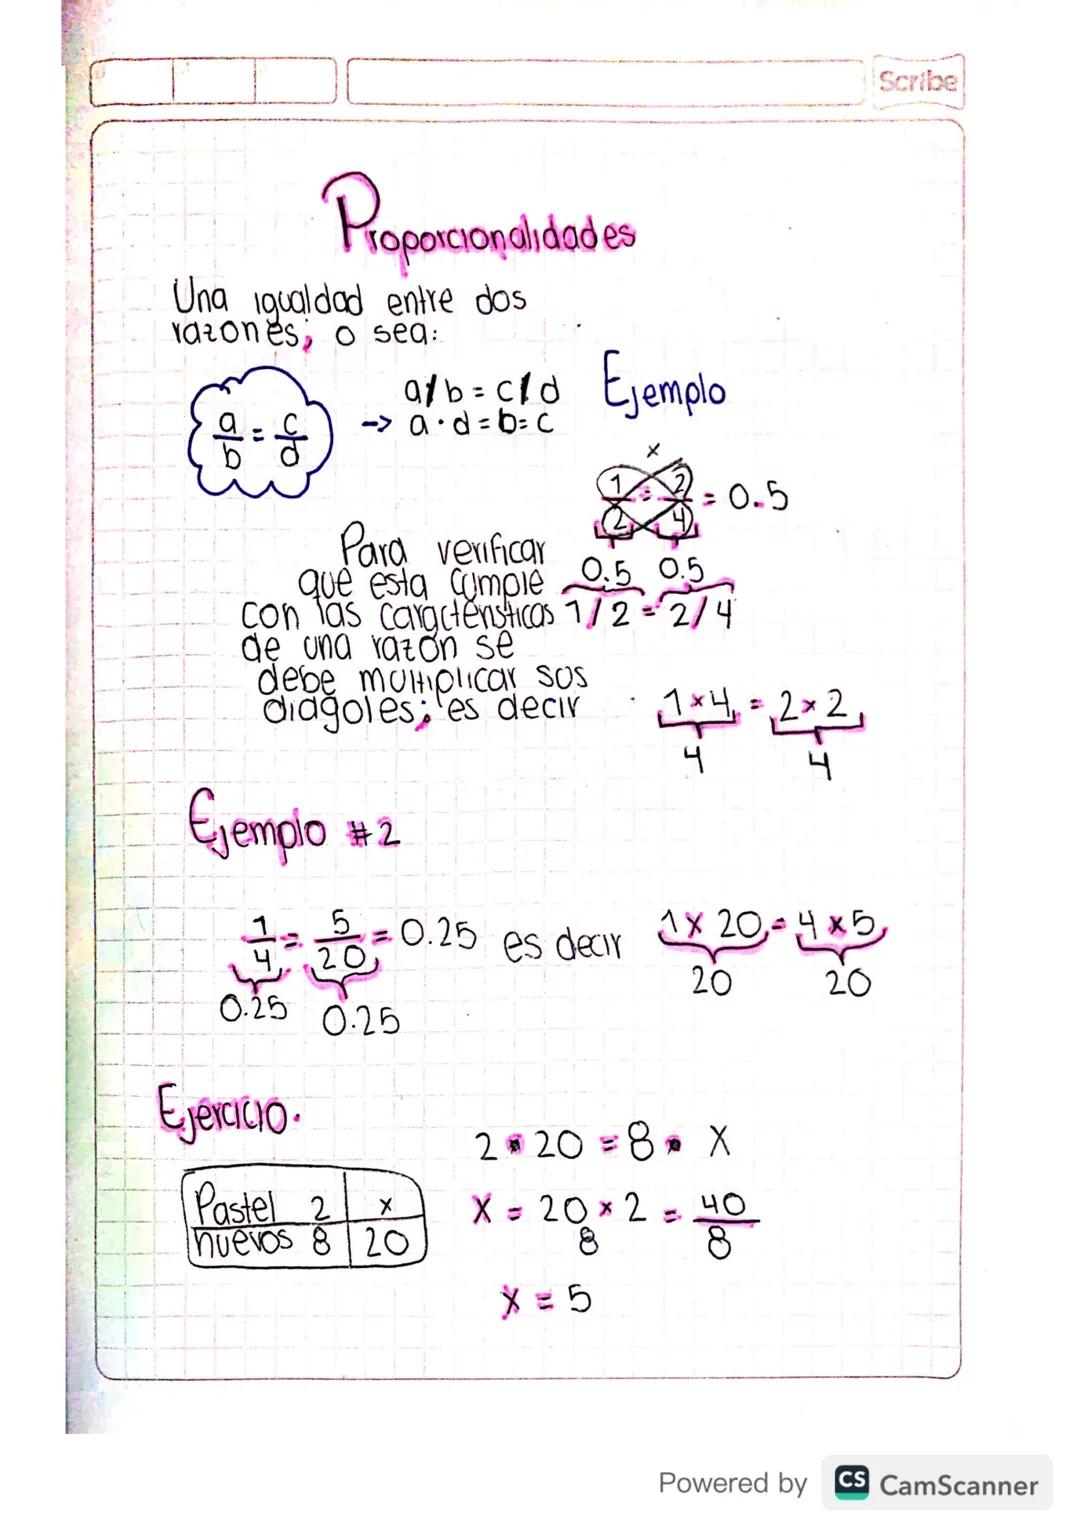 Scribe
Proporcionalidades
Una igualdad entre dos
razones; o sea:
a/b = c/d
a/b = c/d
-> a·d = b= c
Ejemplo
x
1/2 = 2/4 = 0.5
0.5 0.5
1/2 = 2/4
Para verificar
que esta cumple
con las caracterÍsticas
de una razón se
debe multiplicar sus
diagoles; es decir
1×4 = 2×2
4 4
Ejemplo #2
1/4 = 5/20 = 0.25 es decir 1 x 20 = 4 x 5
0.25 0.25
20 20
Ejercicio.
Pastel 2 x
huevos 8 20
2 · 20 = 8 · X
X = 20 × 2 = 40
8 8
X = 5
Powered by CS CamScanner